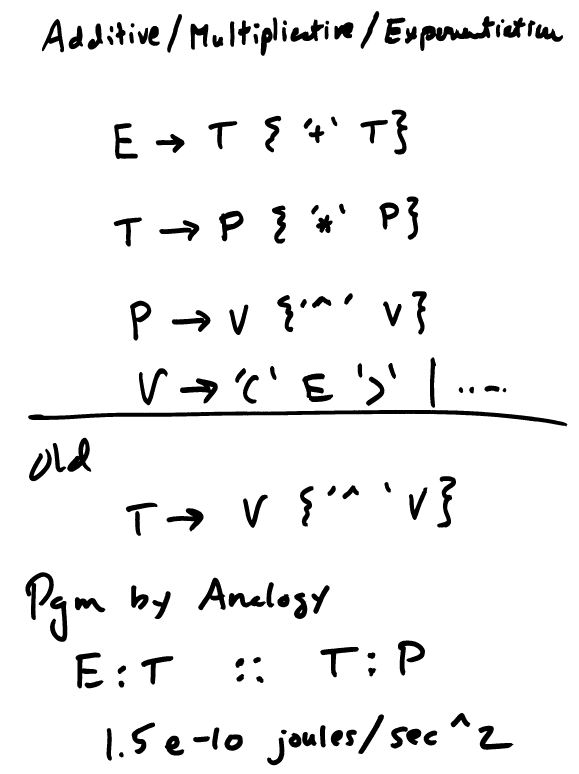 Additive/Multiplicative/Exponentiation
E → T { '+' T}
T → P { '*' P}
P → V {'^' V}
V → '(' E ')' | .....
Old
T → V {'^' V}
Pgm by Analogy
E:T :: T:P
1.5 e-10 joules/sec^2